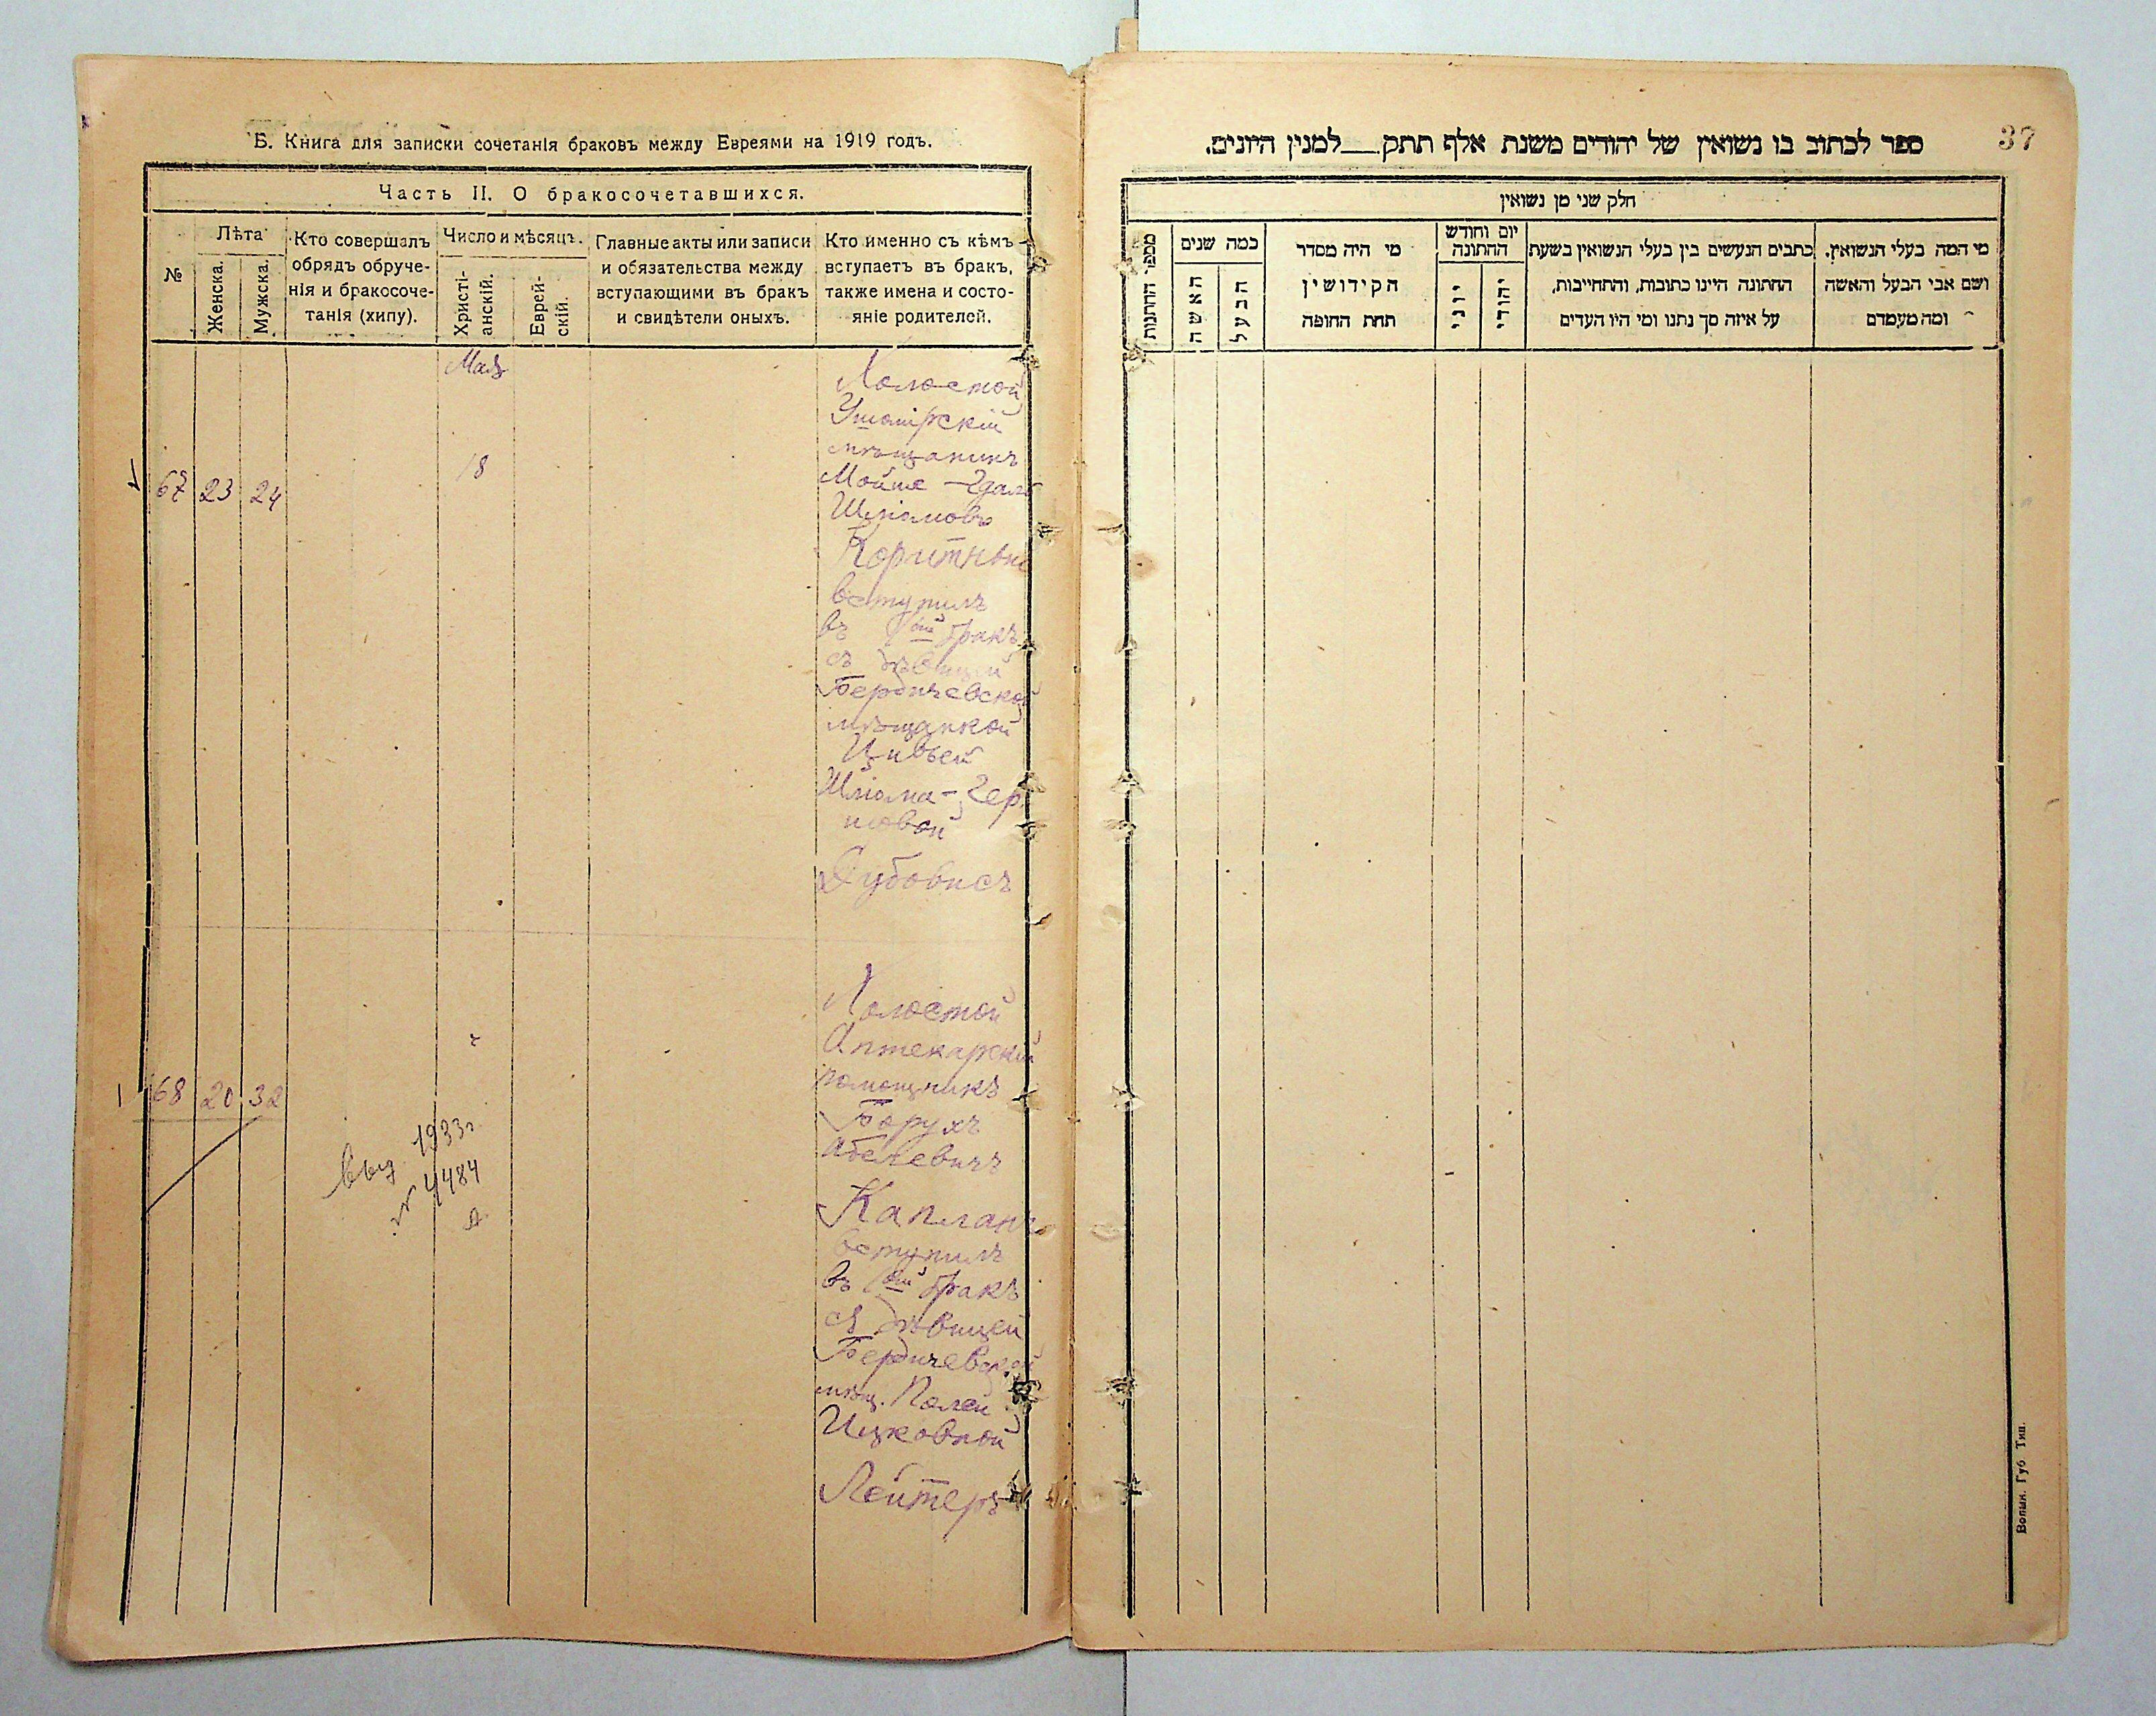 Б. Книга для записки сочетанія браковъ между Евреями на 1919 годъ.
Часть II. О бракосочетавшихся.
№
Лѣта
Женска.
Мужска.
Кто совершалъ
обрядъ обруче-
нія и бракосоче-
танія (хипу).
Число и мѣсяцъ.
Христі-
анскій.
Еврей-
скій.
Главные акты или записи
и обязательства между
вступающими въ бракъ
и свидѣтели оныхъ.
Кто именно съ кѣмъ
вступаетъ въ бракъ,
также имена и состо-
яніе родителей.
Май
67 23 24
18
Холостой
мѣщанинъ
Мойше
Шліомовъ
вступилъ
въ 1ый бракъ
съ дѣвицей
Бердичевской
мѣщанкой
Цивьей
Шліома-Гер
шовой
Дубовисъ
68 20 32
Холостой
Аптекарскій
помощникъ
Борухъ
Абелевичъ
Капланъ
вступилъ
въ 1ый бракъ
съ дѣвицей
Бердичевской
мѣщ. Полей
Ицковной
Лейтеръ
выд 1933г
№ 4484
37
ספר לכתוב בו נשואין של יהודים משנת אלף תתק__למנין היונים.
חלק שני מן נשואין
מספר החתנות
כמה שנים
האשה
הבעל
מי היה מסדר
הקידושין
תחת החופה
יום וחודש
החתונה
יוני
יהודי
כתבים הנעשים בין בעלי הנשואין בשעת
החתונה היינו כתובות, והתחייבות,
על איזה סך נתנו ומי היו העדים
מי המה בעלי הנשואין.
ושם אבי הבעל והאשה
ומה מעמדם
Волын. Губ Тип.